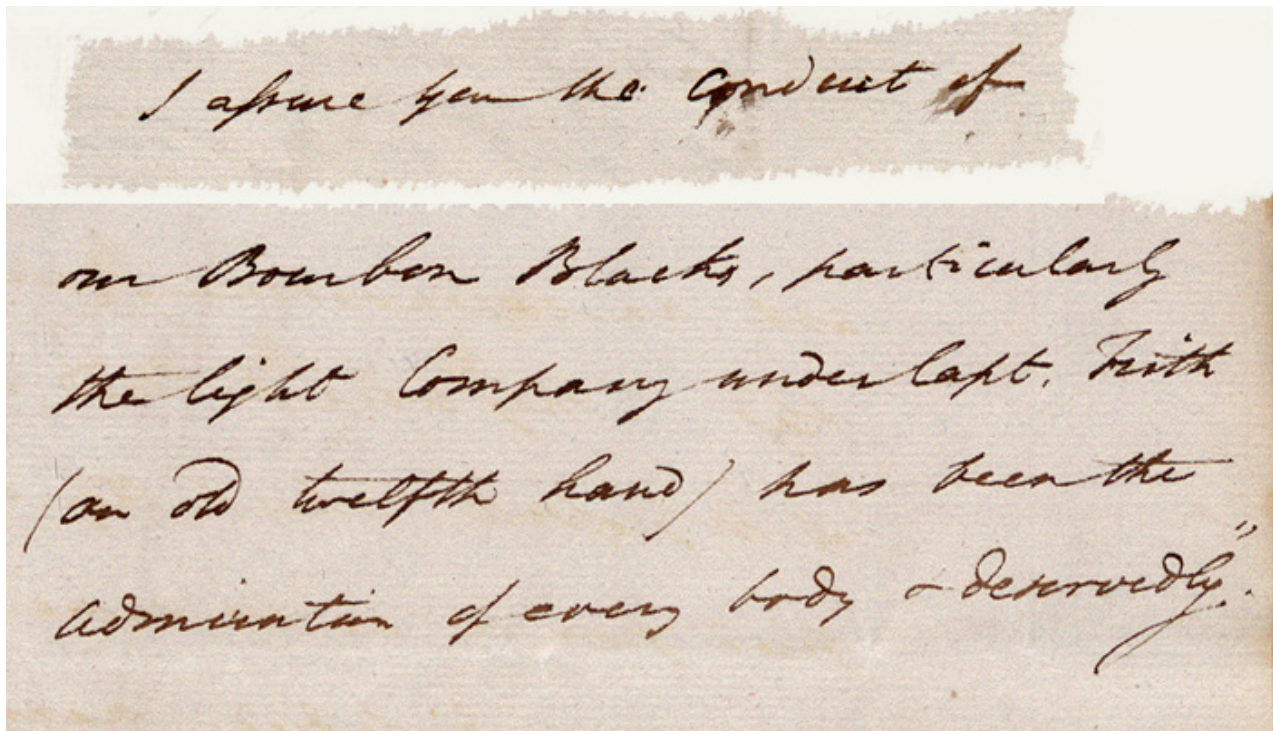 I assure you the conduct of
our Bourbon Blacks, particularly
the light Company under Capt. Frith
(an old twelfth hand) has been the
admiration of every body & deservedly".